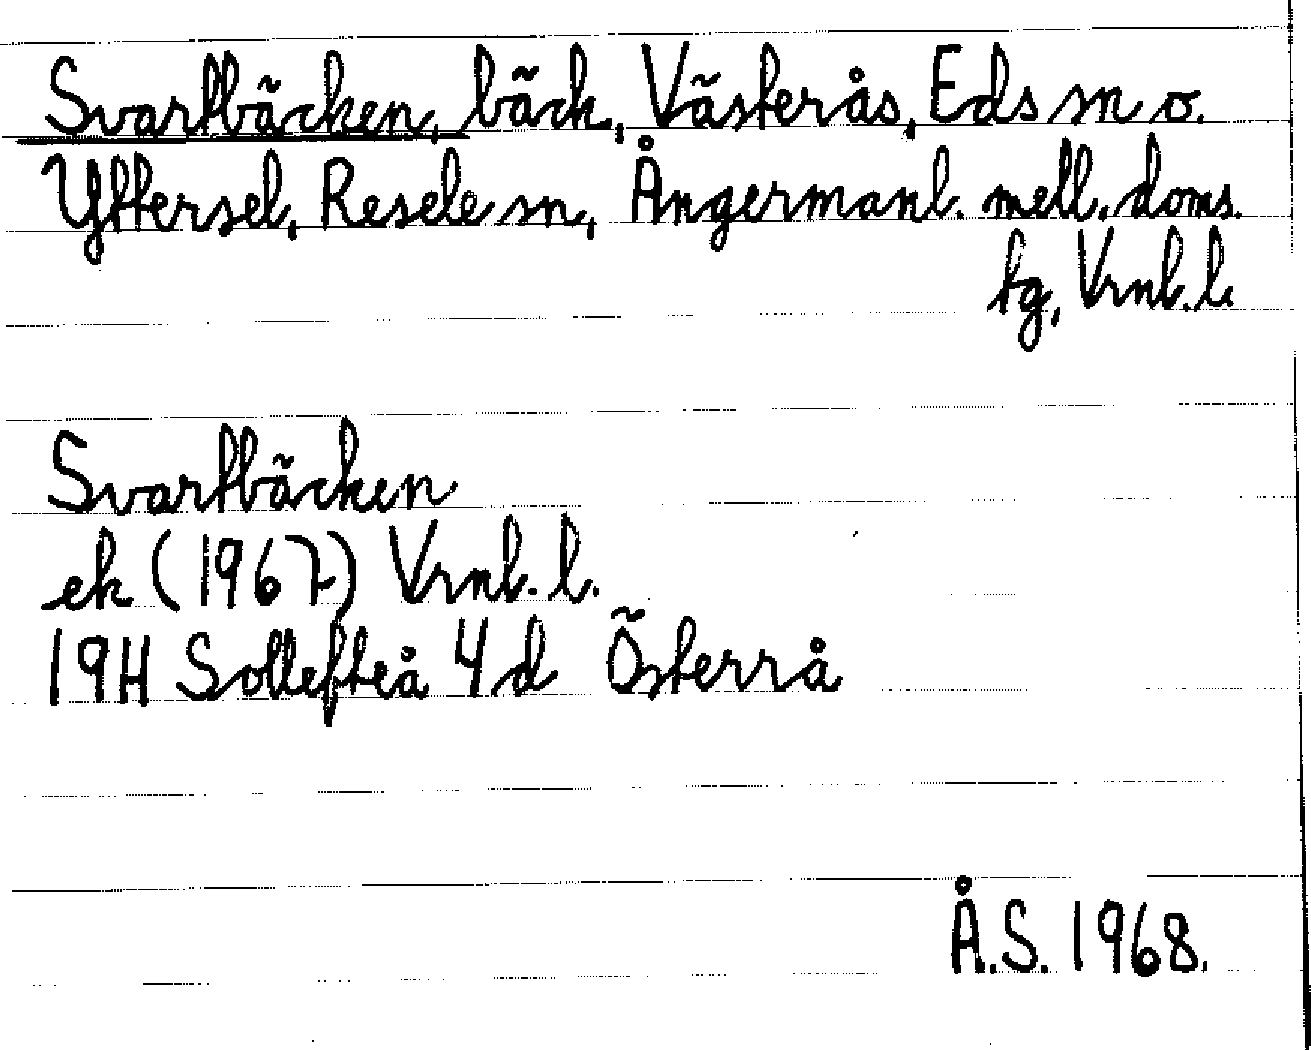 Svartbäcken, bäck, Västerås, Eds sn o.
Yttersel, Resele sn, Ångermanl. mell. doms.
tg, Vrnl. l.
Svartbäcken
ek (1967) Vrnl. l.
19H Sollefteå 4d Österrå
Å.S. 1968.